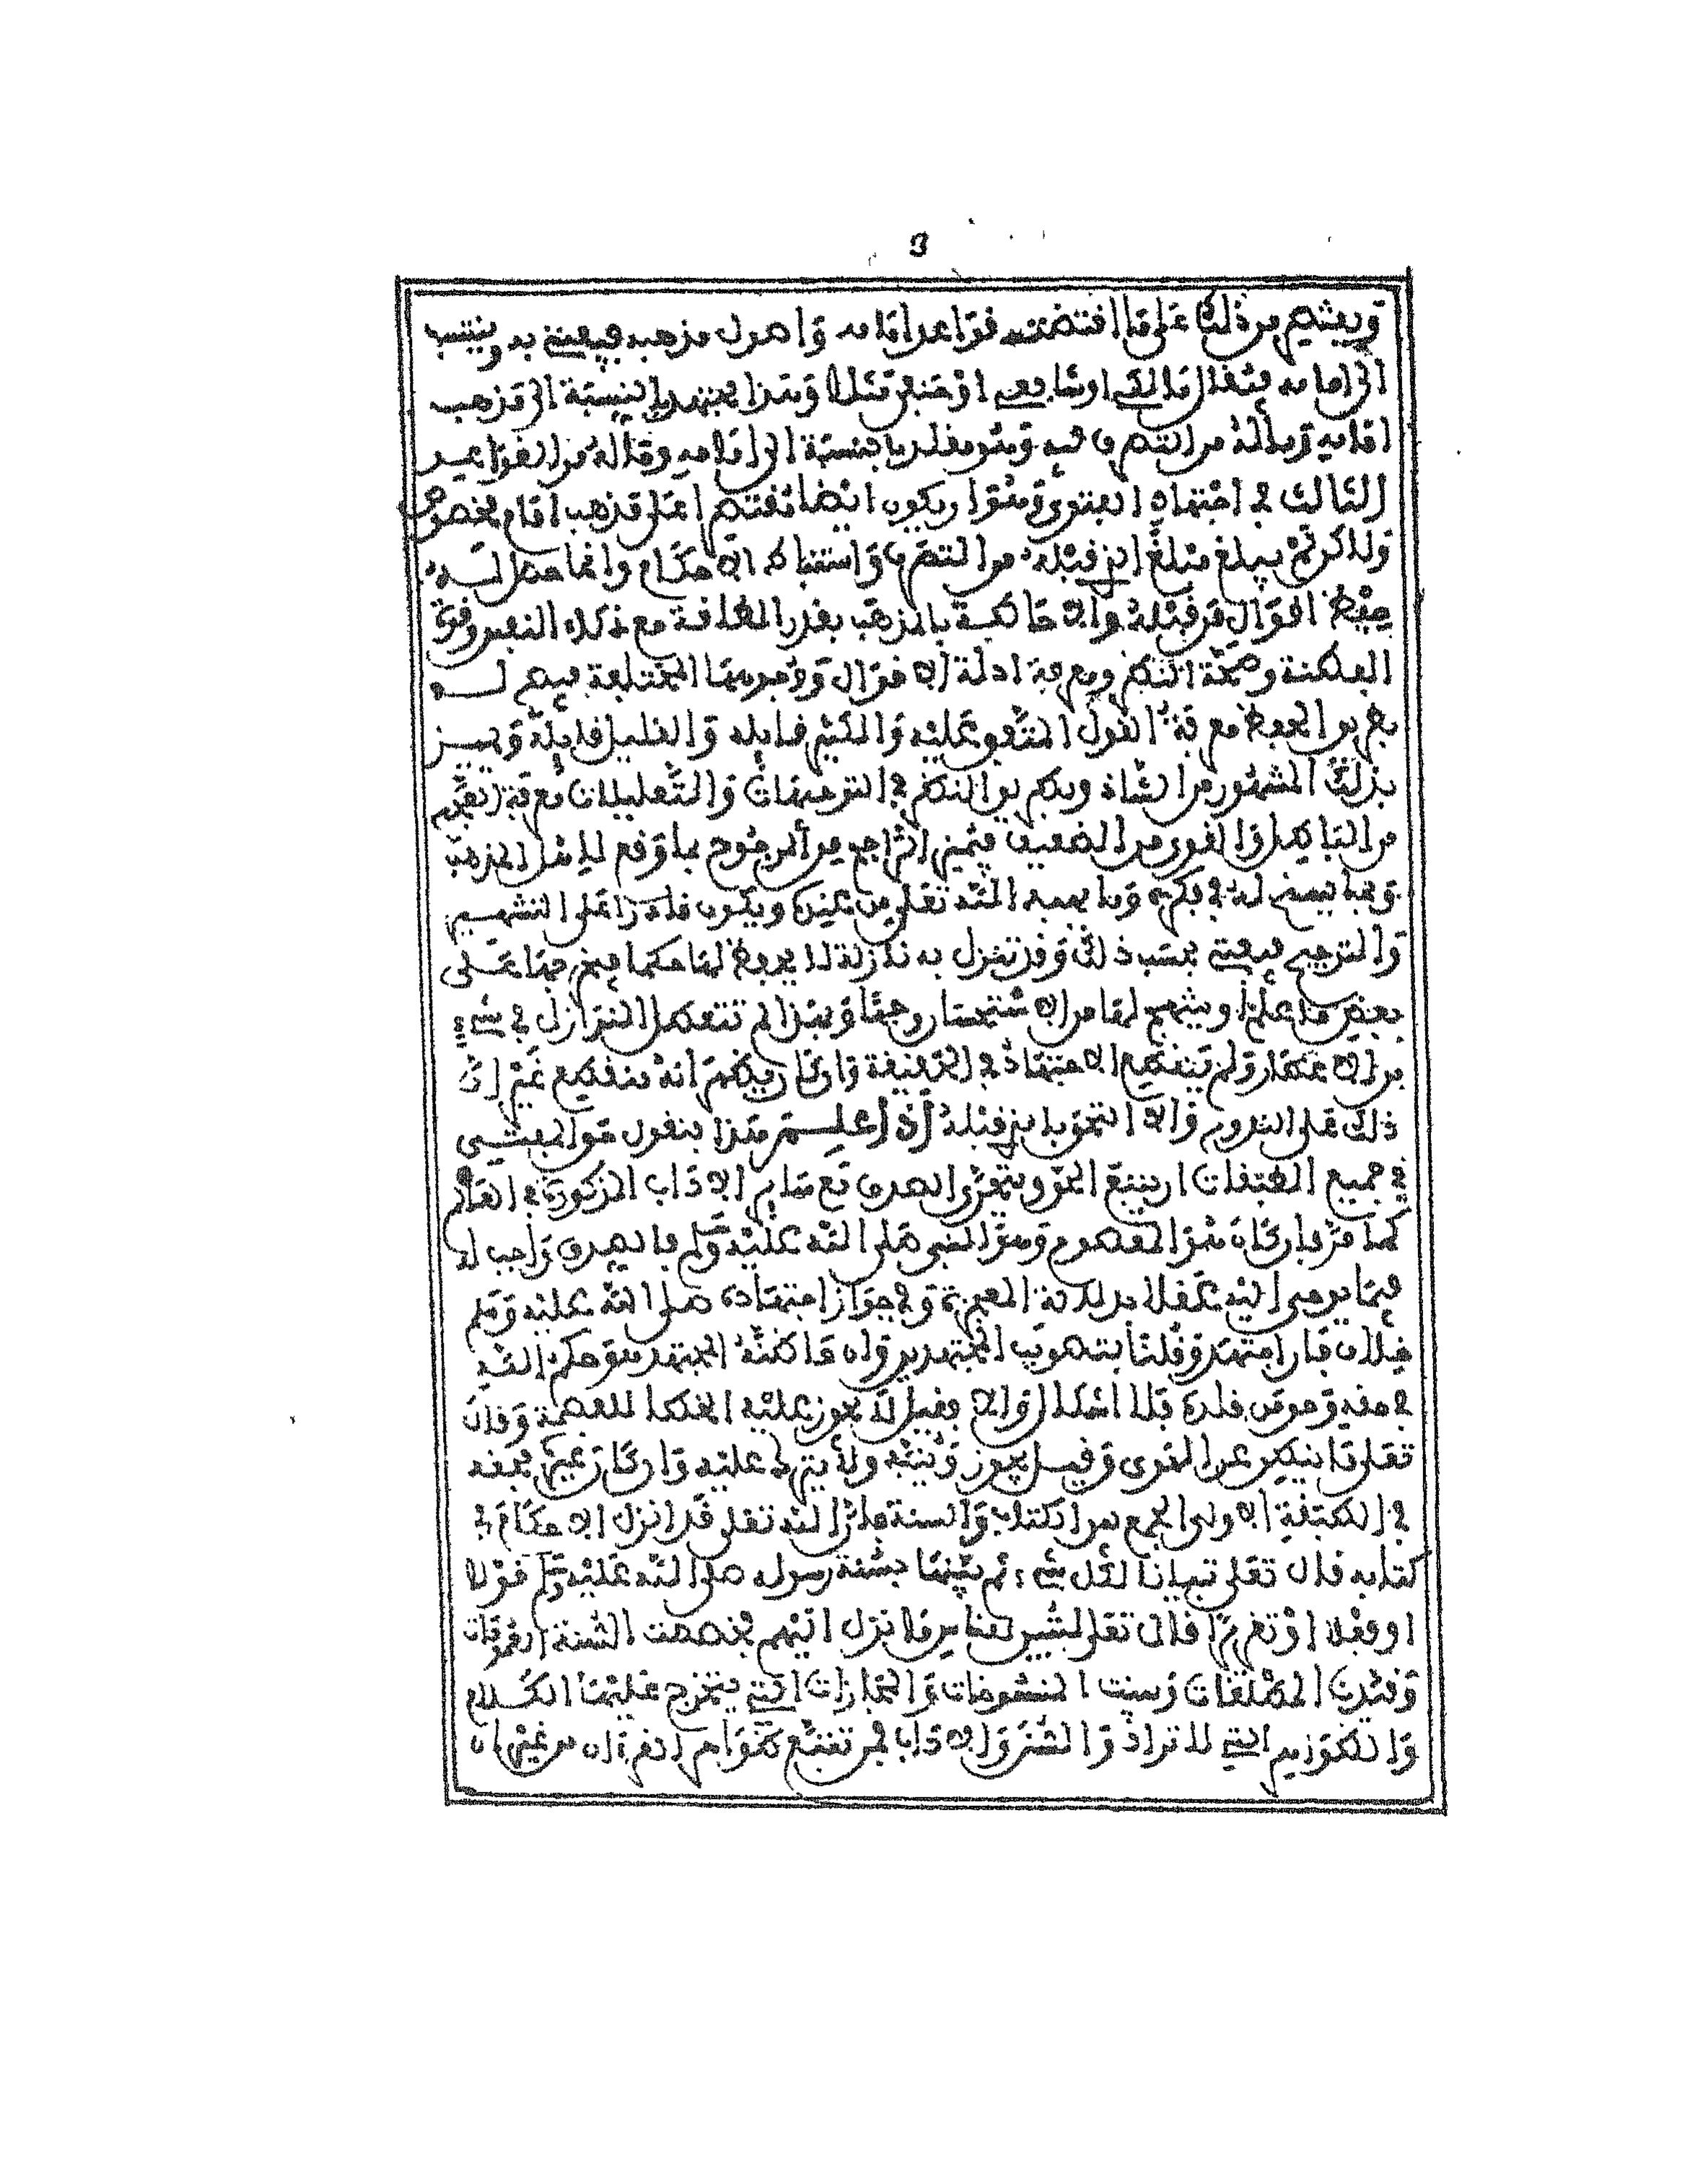 ويفتيهم من ذلك على ما اقتضته قواعد امامه واصول مذهبه فيفتي به وينتسب
الى امامه فيقال مالكي او شافعي او حنفي مثلا وهذا مجتهد بالنسبة الى مذهب
امامه وماله من التصرف فيه وهو مقلد بالنسبة الى امامه وماله من القواعد
الثالث في اجتهاد الفتوى وهو ان يكون ايضا مقتصرا على مذهب امام مخصوص
ولاكن لم يبلغ مبلغ الذي قبله من التصرف واستنباط الاحكام وانما حصل له
حفظ اقوال من قبله والاحاطة بالمذهب بقدر الطاقة مع ذكاء النفس وقوة
الفطنة وصحة النظر ومعرفة ادلة الاقوال ووجوهها المختلفة فيهم له
بطريق الحفظ معرفة القول المتفق عليه والكثير قايله والقليل قايله ويميز
بذلك المشهور من الشاذ وبطريق النظر في التوجيهات والتعليلات معرفة
من الباطل والقوي من الضعيف فيميز الراجح من المرجوح بما وقع لاهل المذهب
وبما يسنح له في فكره وما يهبه الله تعلى من عنده ويكون قادرا على التشهير
والترجيح فيفتي بحسب ذلك وقد تنزل به نازلة لا يعرف لها حكما فيخرجها على
بعض ما علم او ينتهج لها من الاستحسان وجها وبهذا لم تتعطل النوازل في شيء
من الاعصار ولم ينقطع الاجتهاد في الحقيقة وان كان يظهر انه منقطع غير ان
ذلك على التدريج والا التحق بالذي قبله اذا علم هذا بنقول حق المفتي
في جميع الطبقات ان يتبع الحق ويتحرى الصدق مع ساير الاداب المذكورة في العالم
كما مر فان كان هو المعصوم وهو النبي صلى الله عليه وسلم فالصدق واجب له
فيما يوحى اليه عقلا بدلالة المعجزة وفي جواز اجتهاده صلى الله عليه وسلم
خلاف فان اجتهد وقلنا بتصويب المجتهدين وان ما ظنه المجتهد هو حكم الله
في حقه وحق من قلده فلا اشكال والا فقيل لا يجوز عليه الخطا للعصمة وقال
تعلى وما ينطق عن الهوى وقيل يجوز وينبه ولا يتركه عليه وان كان غيره فحقه
في الطبقة الاولى الجمع بين الكتاب والسنة فان الله تعلى قد انزل الاحكام في
كتابه قال تعلى تبيانا لكل شيء ثم بينها بسنة رسوله صلى الله عليه وسلم قولا
او فعلا او تقريرا قال تعلى لتبين للناس ما نزل اليهم فخصصت السنة العمومات
وقيدت المطلقات وبينت المنسوخات والمجازات التي يتخرج عليها الكلام
والظواهر التي لا تراد والسنن والاداب فمن تتبع ظواهر القرءان من غير ان